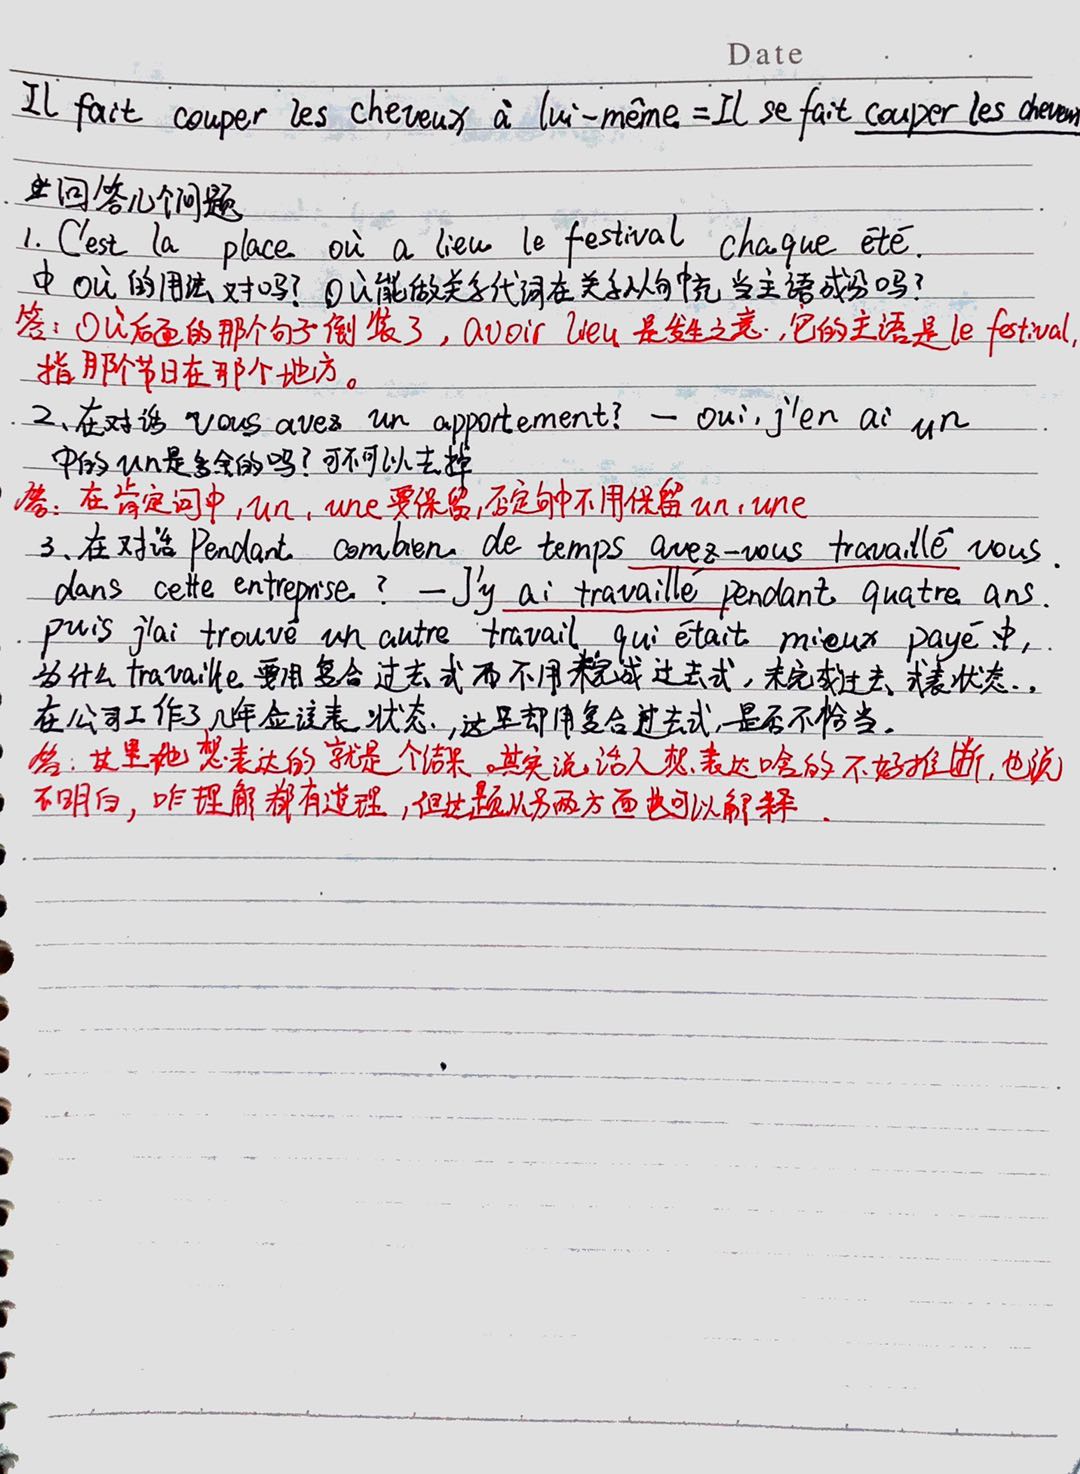 Date
Il fait couper les cheveux à lui-même = Il se fait couper les cheveux
回答几个问题
1. C'est la place où a lieu le festival chaque été.
中 où 的用法对吗? où能做关系代词在关系从句中充当主语成分吗?
答: où后面的那个句子倒装了, avoir lieu 是发生之意, 它的主语是 le festival,
指那个节日在那个地方。
2、在对话 vous avez un apportement? — oui, j'en ai un
中的un是多余的吗? 可不可以去掉
答: 在肯定词中, un, une要保留, 否定句中不用保留 un, une
3、在对话 Pendant combien de temps avez-vous travaillé vous
dans cette entreprise? — J'y ai travaillé pendant quatre ans.
puis j'ai trouvé un autre travail qui était mieux payé 中,
为什么 travaille 要用复合过去式而不用未完成过去式, 未完成过去式表状态.,
在公司工作了几年应该表状态, 这里却用复合过去式, 是否不恰当。
答: 这里他想表达的就是个结果。其实说话人想表达啥的不好推断, 也说
不明白, 咋理解都有道理, 但此题从另两方面也可以解释.